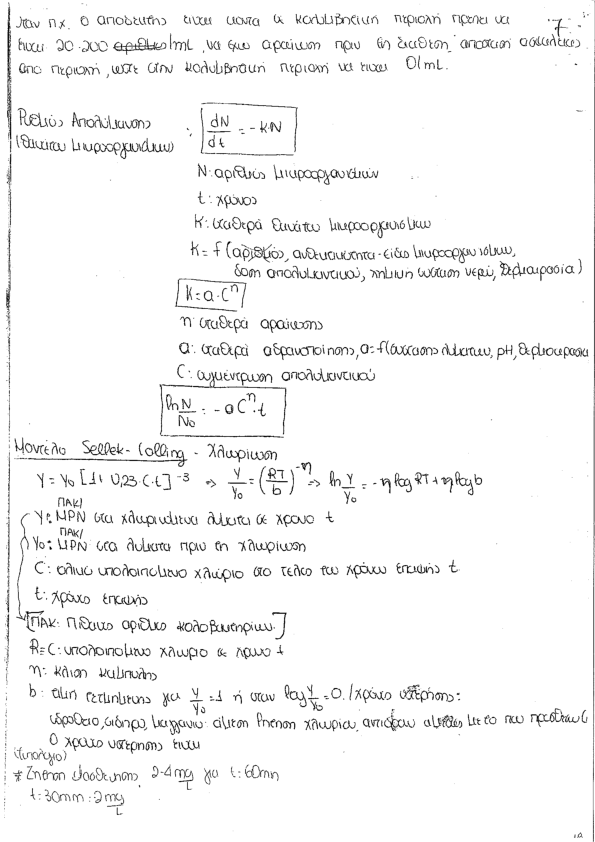 7
όταν π.χ. ο αποδέκτης είναι κοντά σε κολυμβητική περιοχή πρέπει να
είναι 20-200 /mL, να έχω αραίωση πριν τη διάθεση, απόσταση ασφαλείας
από περιοχή, ώστε στην κολυμβητική περιοχή να είναι 0/mL.
Ρυθμός Απολύμανσης : dN/dt = -K·N
(θανάτου μικροοργανισμών)
N: αριθμός μικροοργανισμών
t: χρόνος
K: σταθερά θανάτου μικροοργανισμών
K = f(αριθμός, ανθεκτικότητα-είδο μικροοργανισμων,
δοση απολυμαντικού, χημική σύσταση νερού, θερμοκρασία)
K = a·Cⁿ
n: σταθερά αραίωσης
a: σταθερά αδρανοποίησης, a=f(συστασης λυματων, pH, θερμοκρασια
C: συγκέντρωση απολυμαντικού
ln N/N₀ = -aCⁿ·t
Μοντέλο Sellek-Colling - Χλωρίωση
Y = Y₀ [1+ 0,23·C·t]⁻³ ⇒ Y/Y₀ = (RT/b)⁻ⁿ ⇒ ln Y/Y₀ = -n log RT + n log b
ΠΑΚ/
Y: MPN στα χλωριωμένα λύματα σε χρονο t
ΠΑΚ/
Y₀: MPN στα λυματα πριν τη χλωρίωση
C: ολικό υπολειπομενο χλώριο στο τέλος του χρόνου επαφής t.
t: χρόνος επαφής
[ΠΑΚ: Πιθανο αριθμο κολοβακτηρίων.]
R=C: υπολοιπομενο χλωριο σε χρονο t
n: κλιση καμπυλης
b: τιμη τετμημενης για Y/Y₀=1 ή οταν log Y/Y₀=0. /χρόνο υστέρησης:
υδροθειο, σιδηρο, μαγγανιο: αμεση ζητηση χλωριου, αντιδρουν με το που προσθεσω
Ο χρονο υστερησης ειναι
(τυπολόγιο)
* Ζητηση 2-4 mg/L για t: 60min
t: 30min: 2mg/L